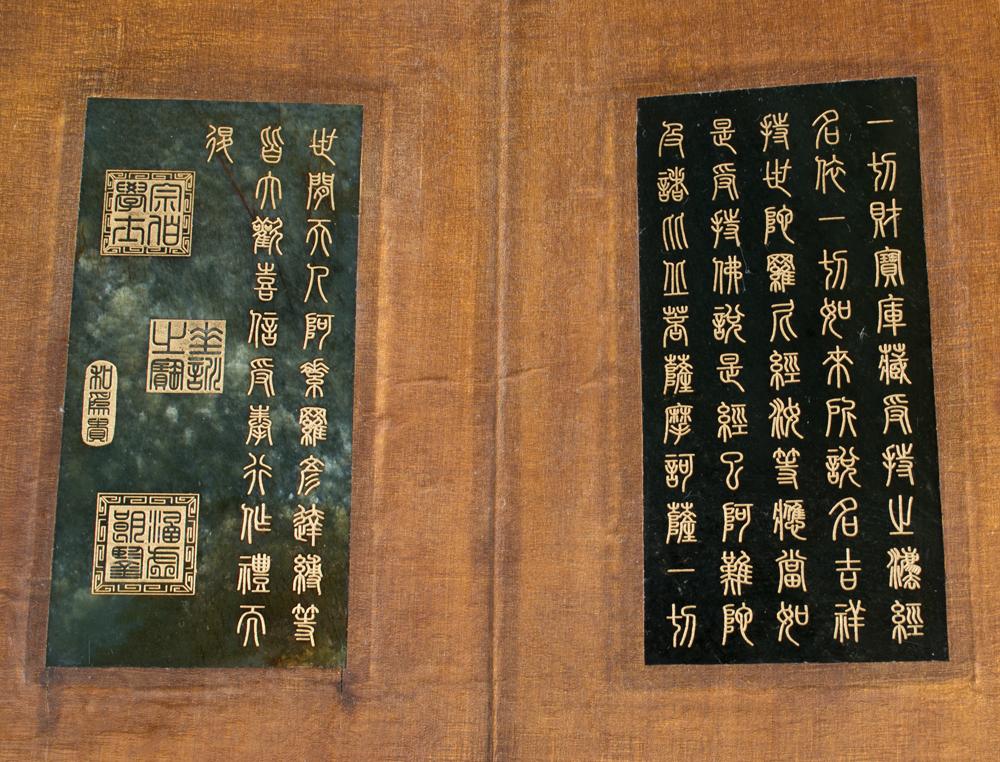 一切財寶庫藏受持之灋經
名依一切如來所說名吉祥
持世陀羅尼經汝等應當如
是受持佛說是經已阿難陀
及諸比丘菩薩摩訶薩一切
世間天人阿素羅彥達縛等
皆大歡喜信受奉行作禮而
退
宗伯學士
訓之寶
和為貴
涵虛朗鑒